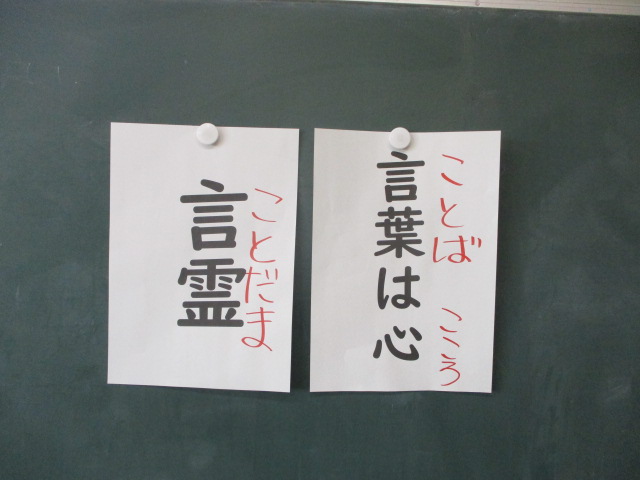 言葉は心
ことば こころ
言霊
ことだま